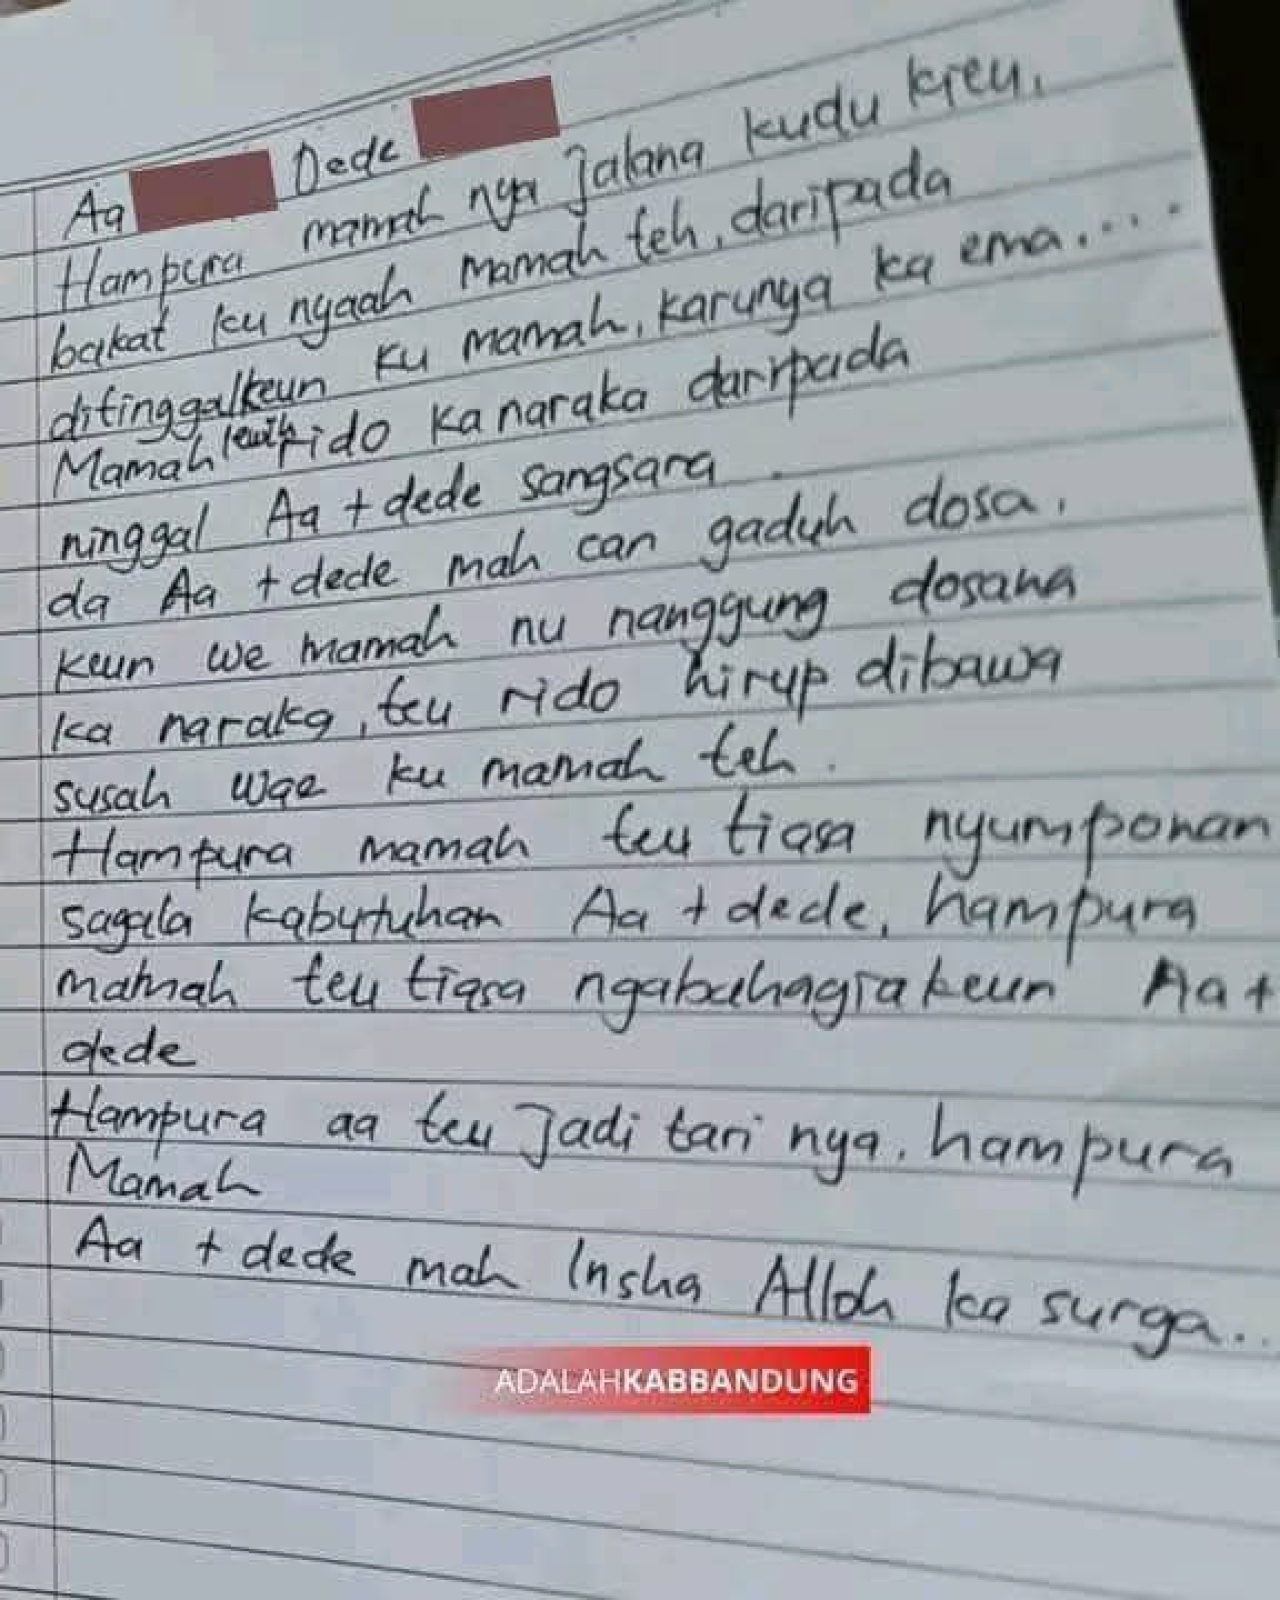 Aa Dede
Hampura mamah nya jalana kudu kieu,
bakat ku nyaah mamah teh, daripada
ditinggalkeun ku mamah, karunya ka ema....
Mamah lewih rido ka naraka daripada
ninggal Aa + dede sangsara
da Aa + dede mah can gaduh dosa,
keun we mamah nu nanggung dosana
ka naraka, teu rido hirup dibawa
susah wae ku mamah teh.
Hampura mamah teu tiasa nyumponan
sagala kabutuhan Aa + dede, hampura
mamah teu tiasa ngabahagiakeun Aa +
dede
Hampura aa teu jadi tari nya, hampura
Mamah
Aa + dede mah Insha Alloh ka surga..
ADALAHKABBANDUNG